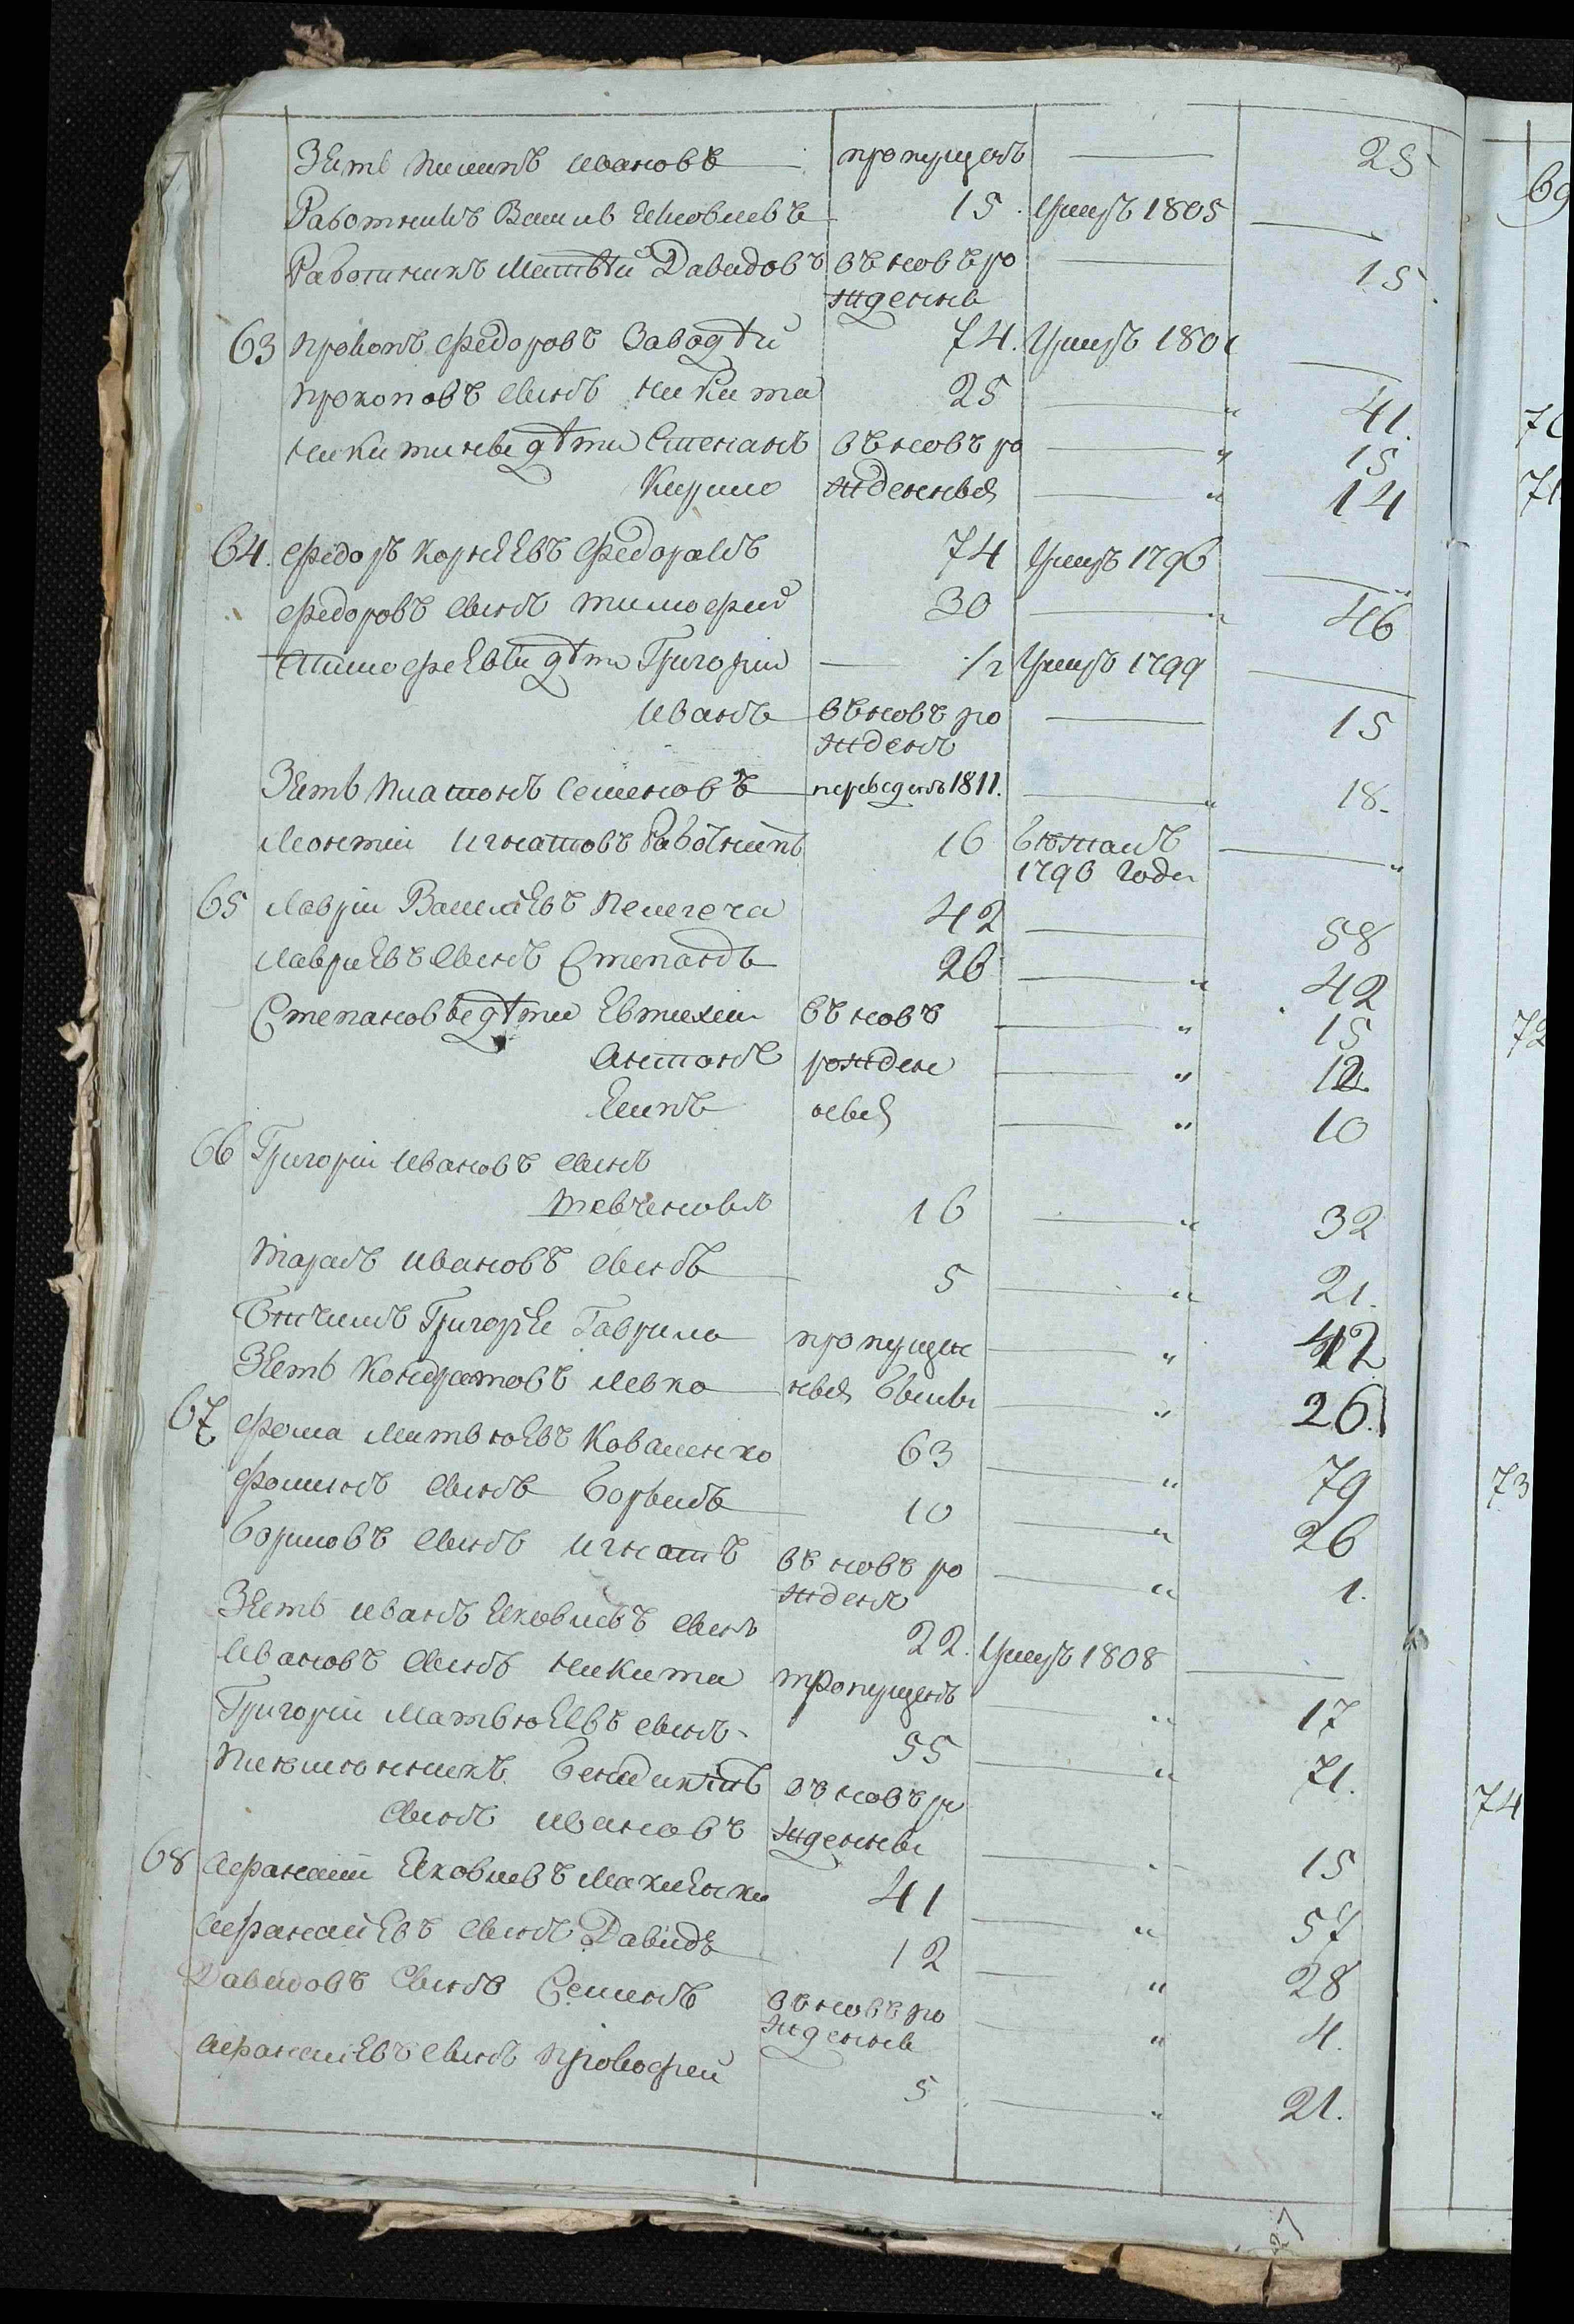 Зять Пилипъ Ивановъ пропущенъ 25
Работникъ Василь Яковлевъ 15 умеръ 1805
Работникъ Матвѣй Давидовъ въновъ ро 15
жденны
63 Прокопъ Федоровъ Заводѣй 74. умеръ 1801
Прокоповъ сынъ Никита 25 " 41.
Никитины дѣти Степанъ въновъ ро " 15
Кирило жденныя " 14
64. Федоръ Корнеевъ 74 умеръ 1796
Федоровъ сынъ Тимофей 30 " 46
Тимофеевы дѣти Григорий 1/2 умеръ 1799
Иванъ въновъ ро 15
жденъ
Зять Платонъ Семеновъ переведенъ 1811. " 18.
Леонтий Игнатовъ Работникъ 16 бежалъ "
1796 Года
65 Лаврин Василиевъ 42 58
Лавриевъ сынъ Степанъ 26 " 42
Степановы дѣти Евтихий въновъ " 15
Антонъ рожден " 12
ныя " 10
66 Григорий Ивановъ сынъ
Шевченковъ 16 " 32
Тарасъ Ивановъ сынъ 5 " 21.
Григорие Гаврило пропущен " 42
Зять Кондратовъ Левко ныя были " 26.
67 Фома Матвюевъ Коваленко 63 " 79
Фоминъ сынъ Борысъ 10 " 26
Борисовъ сынъ Игнатъ въновъ ро " 1.
жденъ
Зять Иванъ Яковлевъ сынъ 22. умеръ 1808
Ивановъ сынъ Никита пропущенъ " 17
Григорий Матвюевъ сынъ 55 " 71.
Племянникъ Бенидиктъ въновъ ро
сынъ Ивановъ жденны " 15
68 Афанасий Яковлевъ 41 " 57
Афанасиевъ сынъ Давидъ 12 " 28
Давидовъ сынъ Семенъ въновъ ро " 4.
жденны
Афанасиевъ сынъ Прокофей 5 " 21.
27
69
71
72
73
74